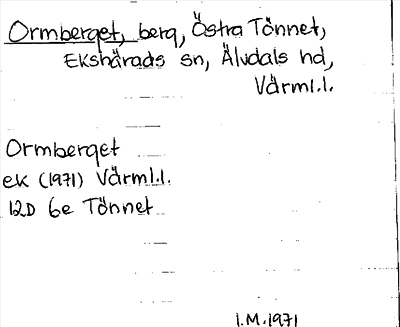 Ormberget, berg, Östra Tönnet,
Ekshärads sn, Älvdals hd,
Värml.l.
Ormberget
ek (1971) Värml.l.
12D 6e Tönnet
I.M.1971